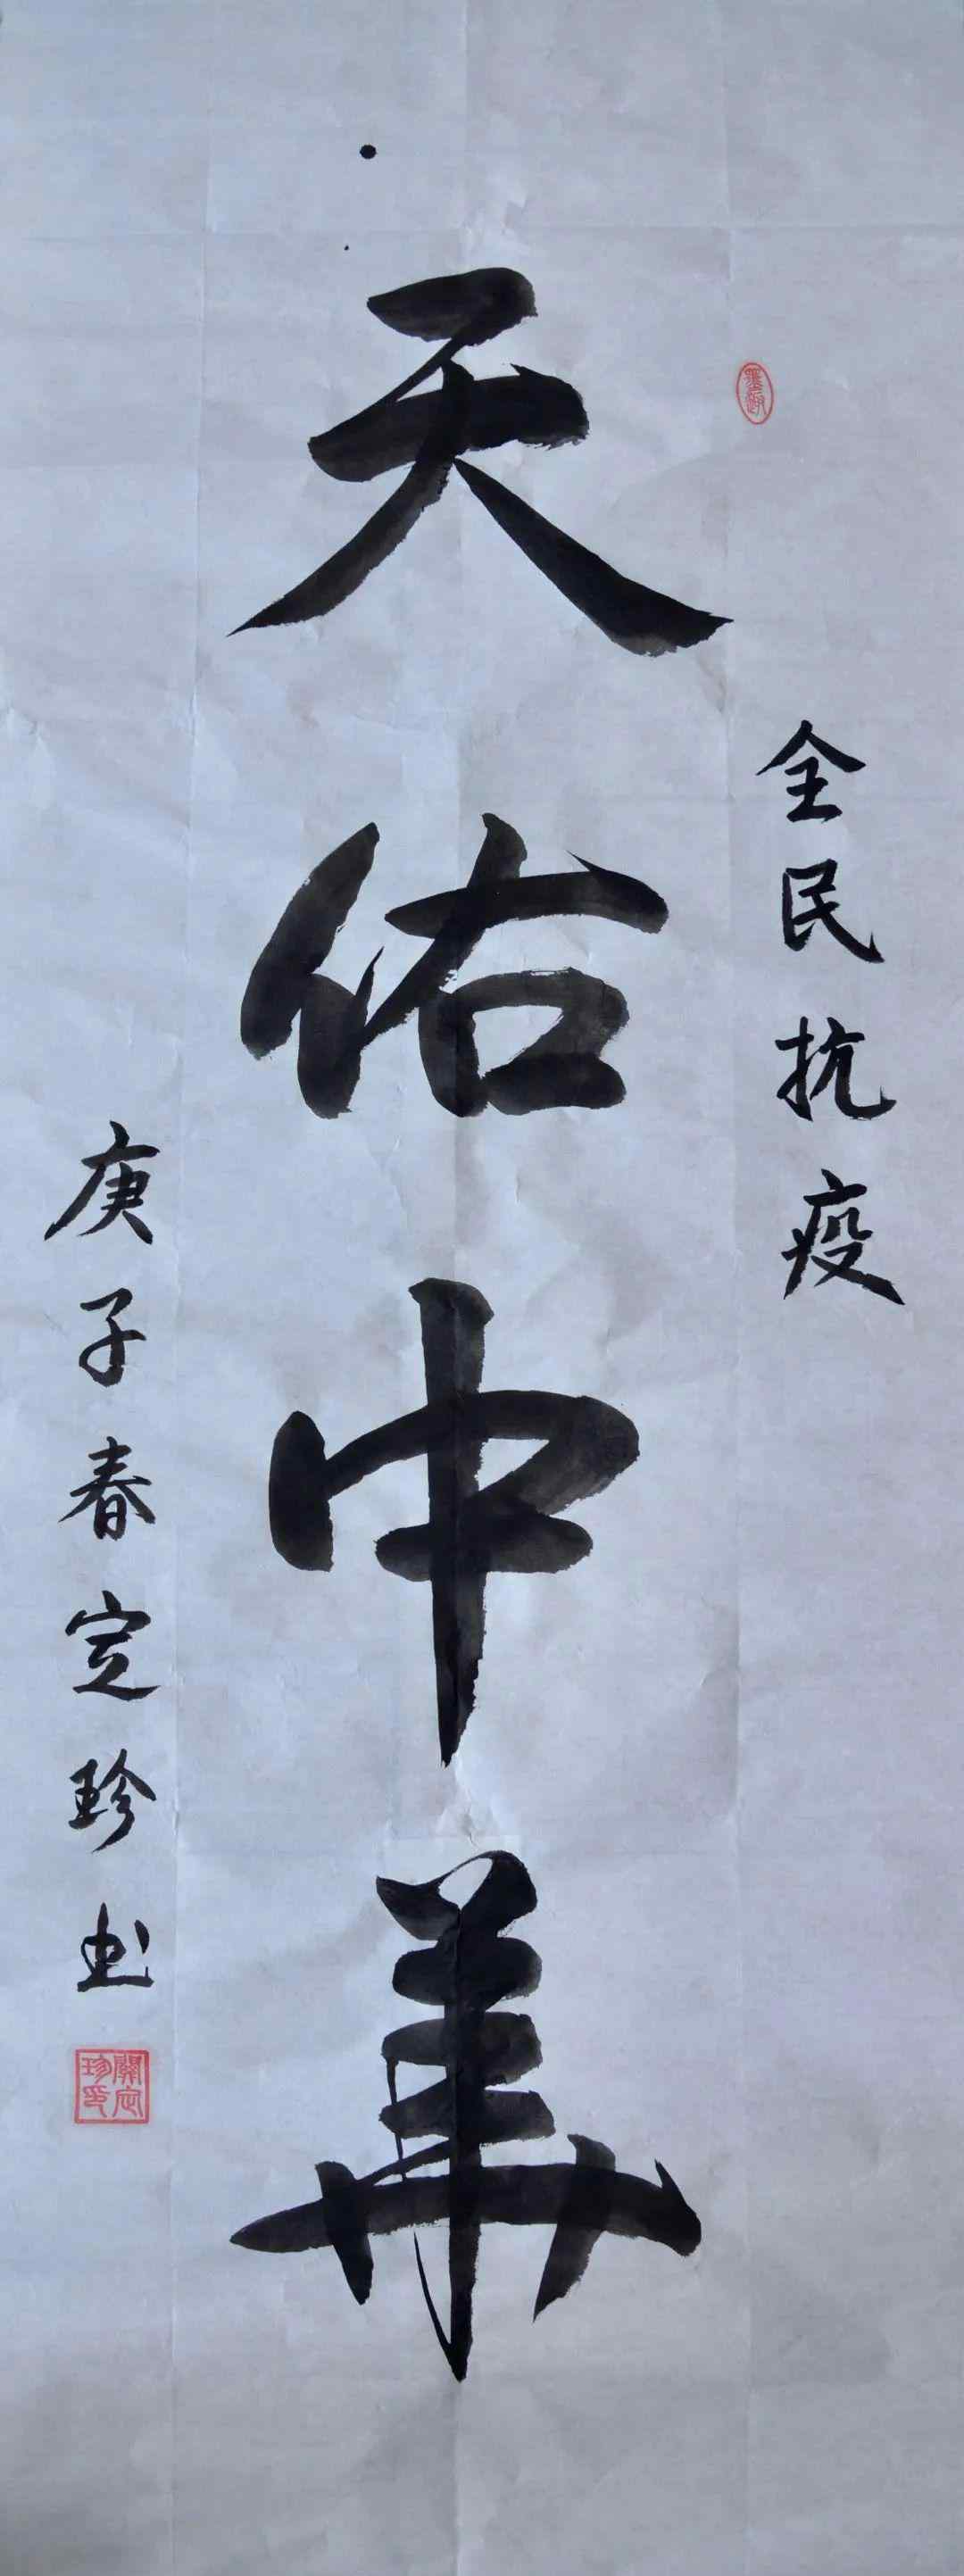 全民抗疫
天佑中華
庚子春定珍书
關定珍印